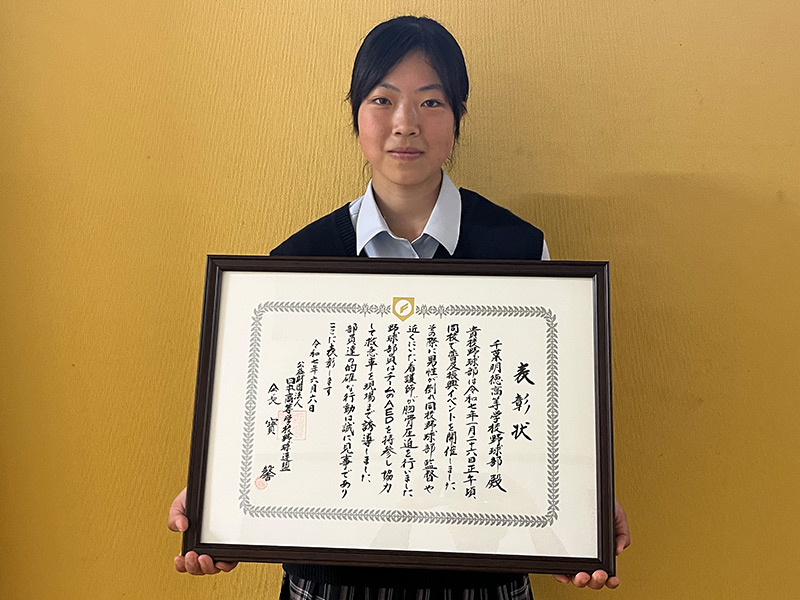 表彰状
千葉明徳高等学校野球部 殿
貴校野球部は令和七年一月二十六日正午頃、
同校で普及振興イベントを開催しました
その際に男性が倒れ同校野球部監督や
近くにいた看護師が胸骨圧迫を行いました
野球部員はチームのAEDを持参し協力
して救急車を現場まで誘導しました
部員達の的確な行動は誠に見事であり
ここに表彰します
令和七年六月六日
公益財団法人
日本高等学校野球連盟
会長 寳 馨